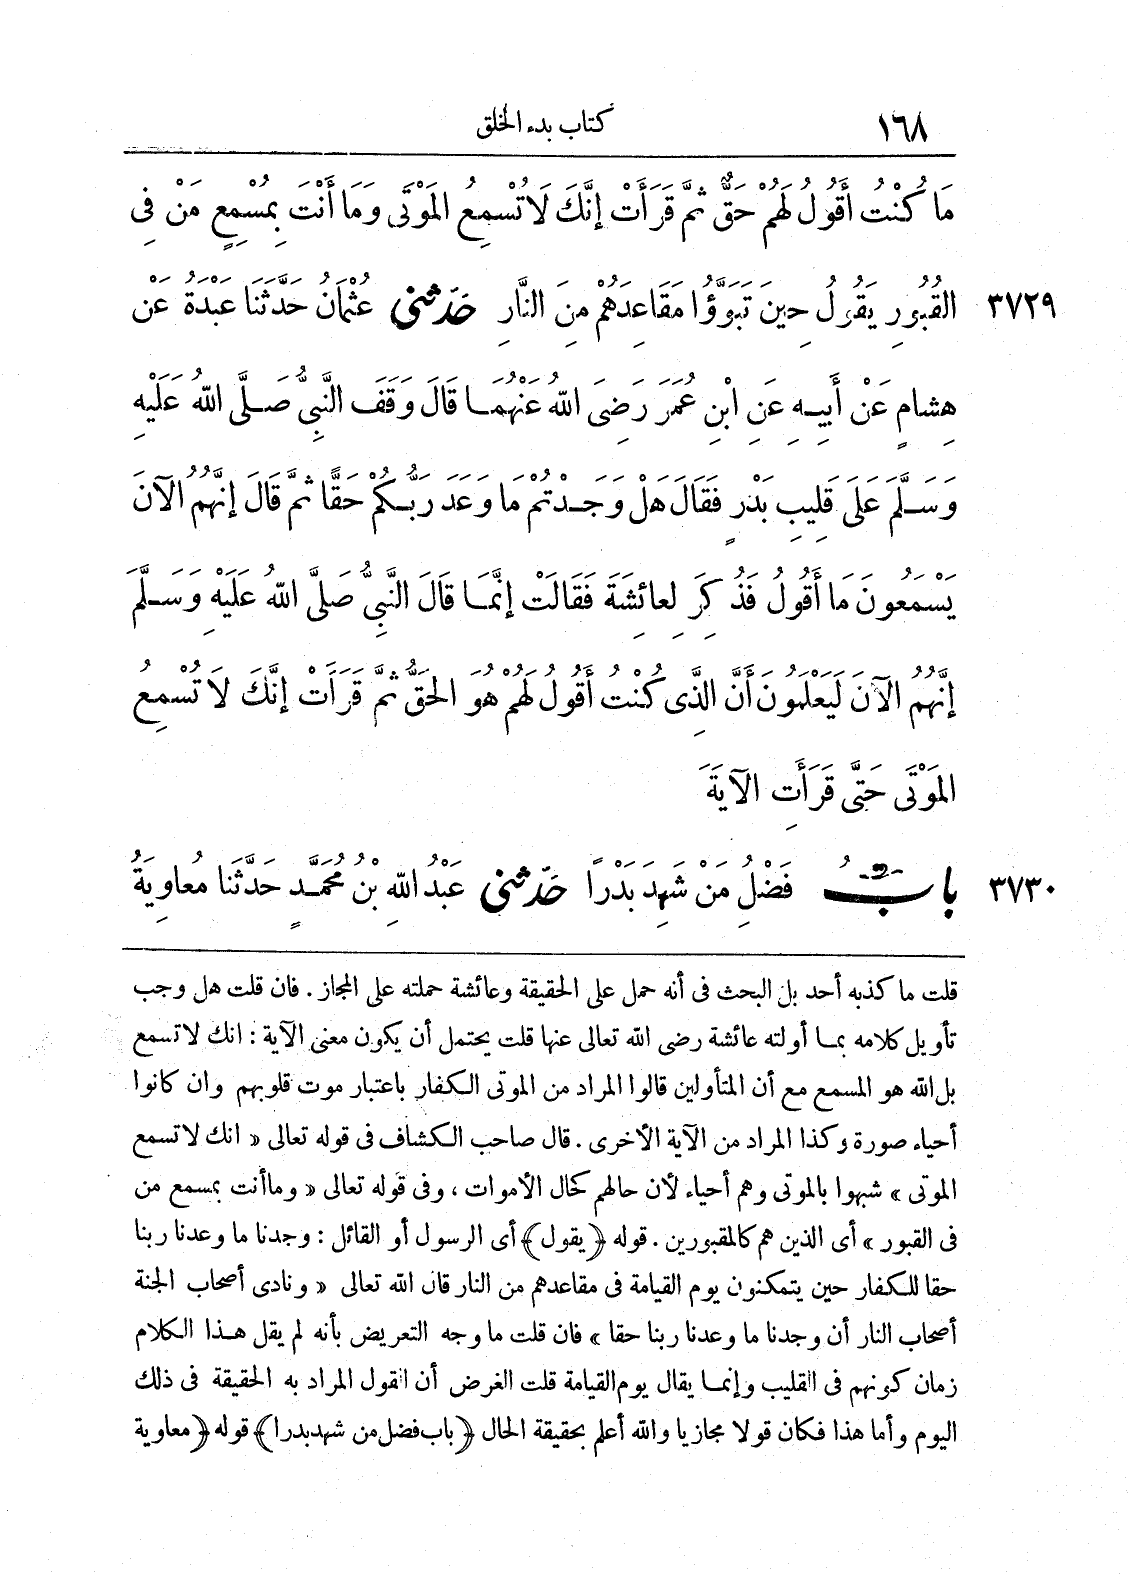 ١٦٨ كتاب بدء الخلق
مَا كُنْتُ أَقُولُ لَهُمْ حَقٌّ ثُمَّ قَرَأَتْ إِنَّكَ لَا تُسْمِعُ الْمَوْتَى وَمَا أَنْتَ بِمُسْمِعٍ مَنْ فِى
٣٧٢٩ الْقُبُورِ يَقُولُ حِينَ تَبَوَّؤُا مَقَاعِدَهُمْ مِنَ النَّارِ حَدَّثَنِى عُثْمَانُ حَدَّثَنَا عَبْدَةُ عَنْ
هِشَامٍ عَنْ أَبِيهِ عَنِ ابْنِ عُمَرَ رَضِىَ اللهُ عَنْهُمَا قَالَ وَقَفَ النَّبِىُّ صَلَّى اللهُ عَلَيْهِ
وَسَلَّمَ عَلَى قَلِيبِ بَدْرٍ فَقَالَ هَلْ وَجَدْتُمْ مَا وَعَدَ رَبُّكُمْ حَقًّا ثُمَّ قَالَ إِنَّهُمُ الْآنَ
يَسْمَعُونَ مَا أَقُولُ فَذُكِرَ لِعَائِشَةَ فَقَالَتْ إِنَّمَا قَالَ النَّبِىُّ صَلَّى اللهُ عَلَيْهِ وَسَلَّمَ
إِنَّهُمُ الْآنَ لَيَعْلَمُونَ أَنَّ الَّذِى كُنْتُ أَقُولُ لَهُمْ هُوَ الْحَقُّ ثُمَّ قَرَأَتْ إِنَّكَ لَا تُسْمِعُ
الْمَوْتَى حَتَّى قَرَأَتِ الْآيَةَ
٣٧٣٠ بابُ فَضْلُ مَنْ شَهِدَ بَدْرًا حَدَّثَنِى عَبْدُ اللهِ بْنُ مُحَمَّدٍ حَدَّثَنَا مُعاوِيَةُ
قلت ما كذبه أحد بل البحث فى أنه حمل على الحقيقة وعائشة حملته على المجاز . فان قلت هل وجب
تأويل كلامه بما أولته عائشة رضى الله تعالى عنها قلت يحتمل أن يكون معنى الآية : انك لا تسمع
بل الله هو المسمع مع أن المتأولين قالوا المراد من الموتى الكفار باعتبار موت قلوبهم وان كانوا
أحياء صورة وكذا المراد من الآية الأخرى . قال صاحب الكشاف فى قوله تعالى « انك لا تسمع
الموتى » شبهوا بالموتى وهم أحياء لأن حالهم كحال الأموات ، وفى قوله تعالى « وما أنت بمسمع من
فى القبور » أى الذين هم كالمقبورين . قوله ﴿يقول﴾ أى الرسول أو القائل : وجدنا ما وعدنا ربنا
حقا للكفار حين يتمكنون يوم القيامة فى مقاعدهم من النار قال الله تعالى « ونادى أصحاب الجنة
أصحاب النار أن وجدنا ما وعدنا ربنا حقا » فان قلت ما وجه التعريض بأنه لم يقل هذا الكلام
زمان كونهم فى القليب وإنما يقال يوم القيامة قلت الغرض أن القول المراد به الحقيقة فى ذلك
اليوم وأما هذا فكان قولا مجازيا والله أعلم بحقيقة الحال ﴿باب فضل من شهد بدرا﴾ قوله ﴿معاوية